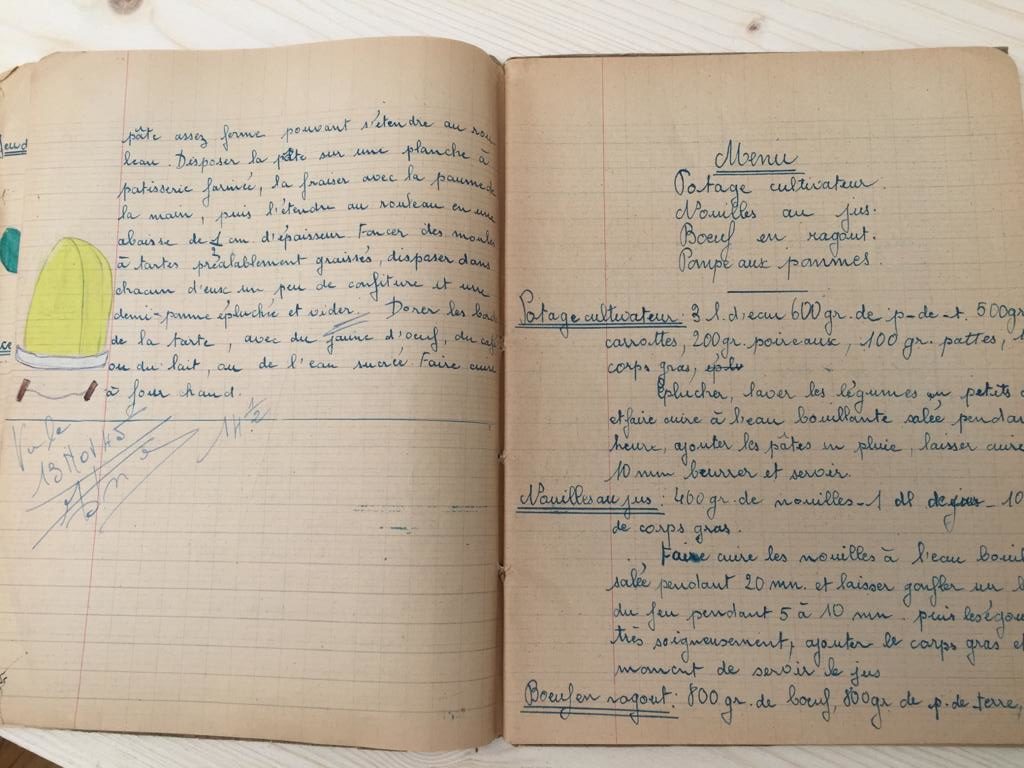 pâte assez ferme pouvant s'étendre au rou
leau. Disposer la pâte sur une planche à
patisserie farinée, la fraiser avec la paume de
la main, puis l'étendre au rouleau en une
abaisse de cm d'épaisseur Foncer des moules
à tartes préalablement graissés, disposer dans
chacun d'eux un peu de confiture et une
demi-pomme épluchée et vider. Dorer les bords
de la tarte, avec du jaune d'oeuf, du café
ou du lait, ou de l'eau sucrée. Faire cuire
à four chaud.
Vu le
13 Nov 45
14 1/2
Menu
Potage cultivateur.
Nouilles au jus.
Boeuf en ragout.
Pompe aux pommes.
Potage cultivateur : 3 l. d'eau 600 gr. de p-de-t. 500gr
carrottes, 200gr. poireaux, 100 gr. pattes, 1
corps gras,
Eplucher, laver les légumes en petits
et faire cuire à l'eau bouillante salée pendan
heure, ajouter les pâtes en pluie, laisser cuire
10 mm beurrer et servoir.
Nouilles au jus : 400 gr. de nouilles - 1 dl de jus - 10
de corps gras.
Faire cuire les nouilles à l'eau bouil
salée pendant 20 mn. et laisser gonfler un
du feu pendant 5 à 10 mn. puis les égou
très soigneusement, ajouter le corps gras et
moment de servoir le jus
Boeuf en ragout : 800 gr. de boeuf, 800 gr. de p. de terre,